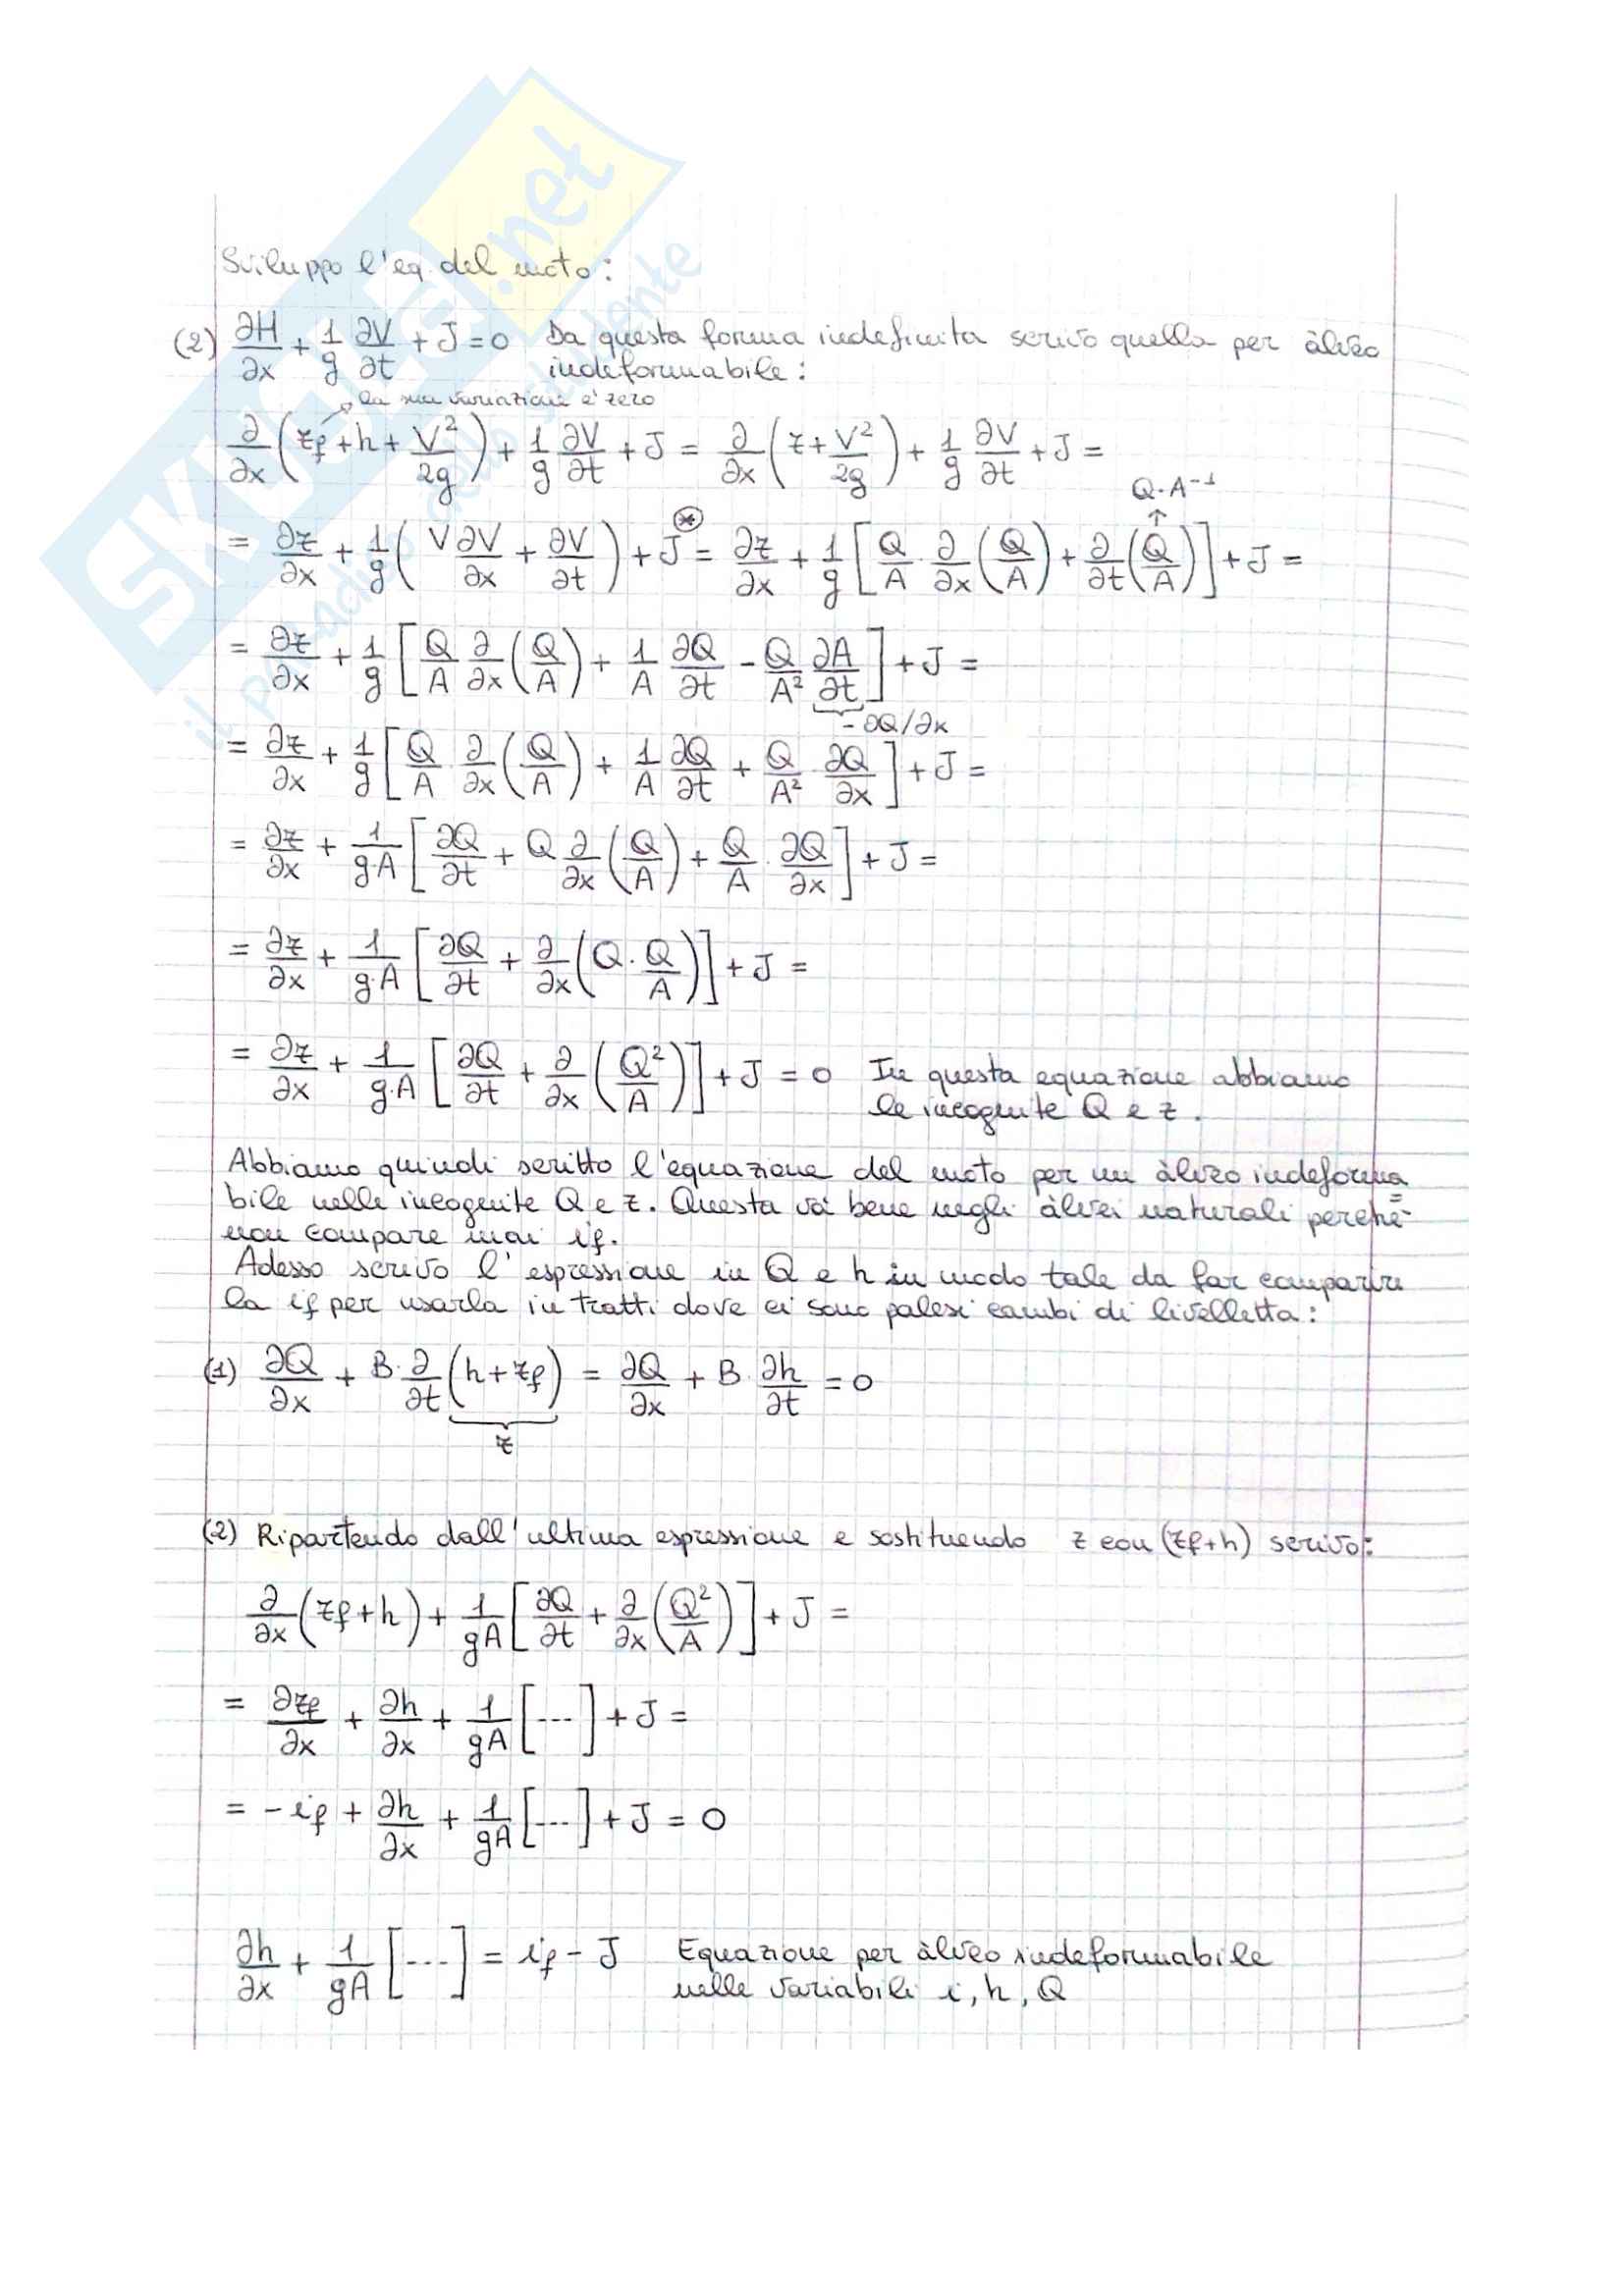 SKUOLA.net
il paradiso dello studente
Sviluppo l'eq. del moto:
(2) ∂H/∂x + 1/g ∂V/∂t + J = 0 Da questa forma indefinita scrivo quella per àlveo
indeformabile:
la sua variazione è zero
∂/∂x (zf + h + V²/2g) + 1/g ∂V/∂t + J = ∂/∂x (z + V²/2g) + 1/g ∂V/∂t + J =
Q·A⁻¹
= ∂z/∂x + 1/g ( V∂V/∂x + ∂V/∂t ) + J ⊛= ∂z/∂x + 1/g [ Q/A · ∂/∂x (Q/A) + ∂/∂t (Q/A) ] + J =
= ∂z/∂x + 1/g [ Q/A ∂/∂x (Q/A) + 1/A ∂Q/∂t - Q/A² ∂A/∂t ] + J =
- ∂Q/∂x
= ∂z/∂x + 1/g [ Q/A · ∂/∂x (Q/A) + 1/A ∂Q/∂t + Q/A² · ∂Q/∂x ] + J =
= ∂z/∂x + 1/g·A [ ∂Q/∂t + Q ∂/∂x (Q/A) + Q/A · ∂Q/∂x ] + J =
= ∂z/∂x + 1/g·A [ ∂Q/∂t + ∂/∂x (Q · Q/A) ] + J =
= ∂z/∂x + 1/g·A [ ∂Q/∂t + ∂/∂x (Q²/A) ] + J = 0 In questa equazione abbiamo
le incognite Q e z.
Abbiamo quindi scritto l'equazione del moto per un àlveo indeforma=
bile nelle incognite Q e z. Questa và bene negli àlvei naturali perchè
non compare mai if.
Adesso scrivo l'espressione in Q e h in modo tale da far comparire
la if per usarla in tratti dove ci sono palesi cambi di livelletta:
(1) ∂Q/∂x + B·∂/∂t (h + zf) = ∂Q/∂x + B·∂h/∂t = 0
z
(2) Ripartendo dall'ultima espressione e sostituendo z con (zf+h) scrivo:
∂/∂x (zf + h) + 1/gA [ ∂Q/∂t + ∂/∂x (Q²/A) ] + J =
= ∂zf/∂x + ∂h/∂x + 1/gA [ --- ] + J =
= - if + ∂h/∂x + 1/gA [ --- ] + J = 0
∂h/∂x + 1/gA [ --- ] = if - J Equazione per àlveo indeformabile
nelle variabili i, h, Q